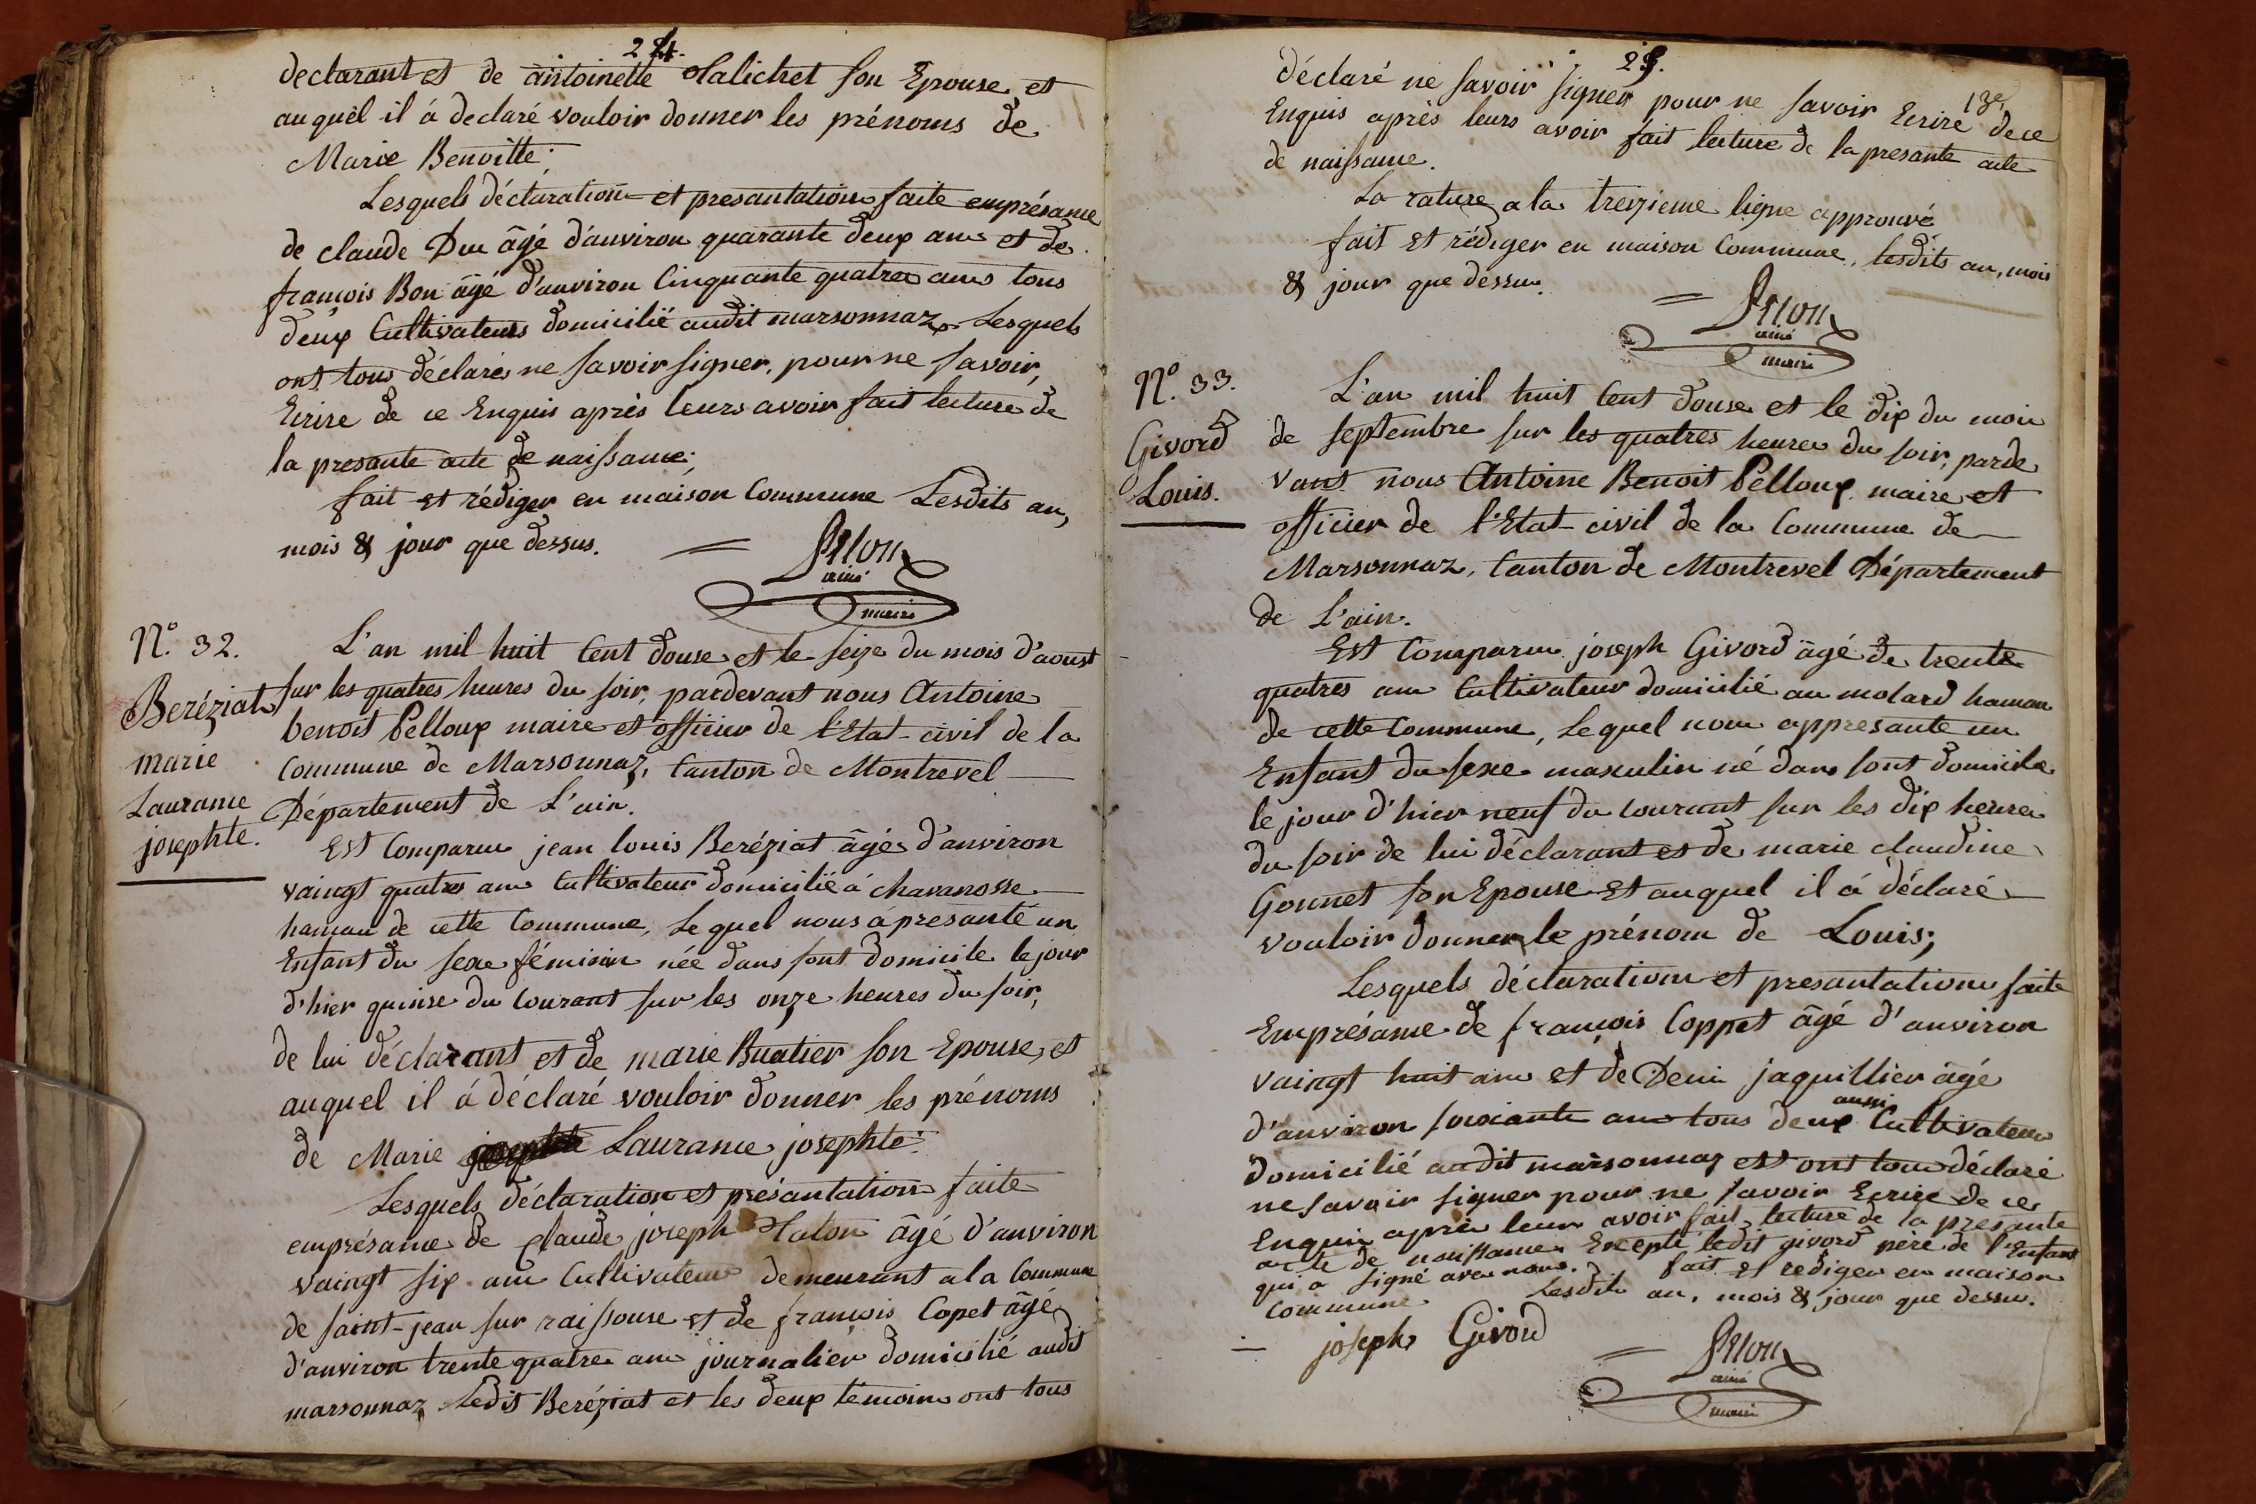 24.
declarant et de antoinette Salichet son Epouse et
auquel il á declaré vouloir donner les prénoms de
Marie Benoitte;
Lesquels déclaration et presantation faite emprésance
de claude Duc âgé d'anviron quarante deux ans et de
françois Bon âgé d'anviron Cinquante quatre ans tous
deux Cultivateurs domicilié audit marsonnaz Lesquels
ont tous déclarés ne savoir signer, pour ne savoir,
Ecrire de ce Enquis après leurs avoir fait lecture de
la presante acte de naissance;
fait et rédiger en maison Commune Lesdits an,
mois & jour que dessus.
ainé
maire
N.° 32.
Beréziat
marie
Laurance
josephte.
L'an mil huit Cent douse et le seize du mois d'aoust
sur les quatres heures du soir, pardevant nous Antoine
benoit Pelloux maire et officier de l'Etat civil de la
Commune de Marsonnaz, Canton de Montrevel
Département de L'ain.
Est Comparu jean louis Beréziat âgé d'anviron
vaingt quatres ans Cultivateur domicilié á chavanosse
hamau de cette Commune, Lequel nous a presanté un
Enfant du sexe féminin née dans sont domicile le jour
d'hier quinse du Courant sur les onze heures du soir,
de lui déclarant et de marie Buatier son Epouse, et
auquel il á déclaré vouloir donner les prénoms
de Marie Laurance josephte;
Lesquels déclaration et présantation faite
emprésance de claude joseph âgé d'anviron
vaingt six ans Cultivateur demeurant a la Commune
de saint-jean sur raissouse et de françois Copet âgé
d'anviron trente quatre ans journalier domicilié audit
marsonnaz Ledit Beréziat et les deux témoins ont tous
25.
déclaré ne savoir signer pour ne savoir Ecrire de ce
13e
Enquis après leurs avoir fait lecture de la presante acte
de naissance.
La rature a la treizieme ligne approuvé
fait et rédiger en maison Commune, lesdits an, mois
& jour que dessus.
ainé
maire
N.° 33.
Givord
Louis.
L'an mil huit Cent douse et le dix du mois
de septembre sur les quatres heures du soir, parde
vant nous Antoine Benoit Pelloux maire et
officier de l'Etat civil de la Commune de
Marsonnaz, Canton de Montrevel Département
de L'ain.
Est Comparu joseph Givord âgé de trente
quatres ans Cultivateur domicilié au molard hamau
de cette Commune, Lequel nous appresante un
Enfant du sexe masculin né dans sont domicile
le jour d'hier neuf du courant sur les dix heures
du soir de lui déclarant et de marie claudine
Gonnet son Epouse Et auquel il á déclaré
vouloir donner le prénom de Louis;
Lesquels déclarations et presantations faite
Emprésance de françois Coppet âgé d'anviron
vaingt huit ans et de Denis jaquillier âgé
d'anviron soixante ans tous deux aussi Cultivateurs
domicilié audit marsonnaz est ont tous déclaré
ne savoir signer pour ne savoir Ecrire de ce
Enquis après leurs avoir fait lecture de la presante
acte de naissance Excepté ledit givord père de l'Enfant
qui a signé avec nous. fait et rediger en maison
Commune Lesdits an, mois & jour que dessus.
joseph Givord
ainé
maire